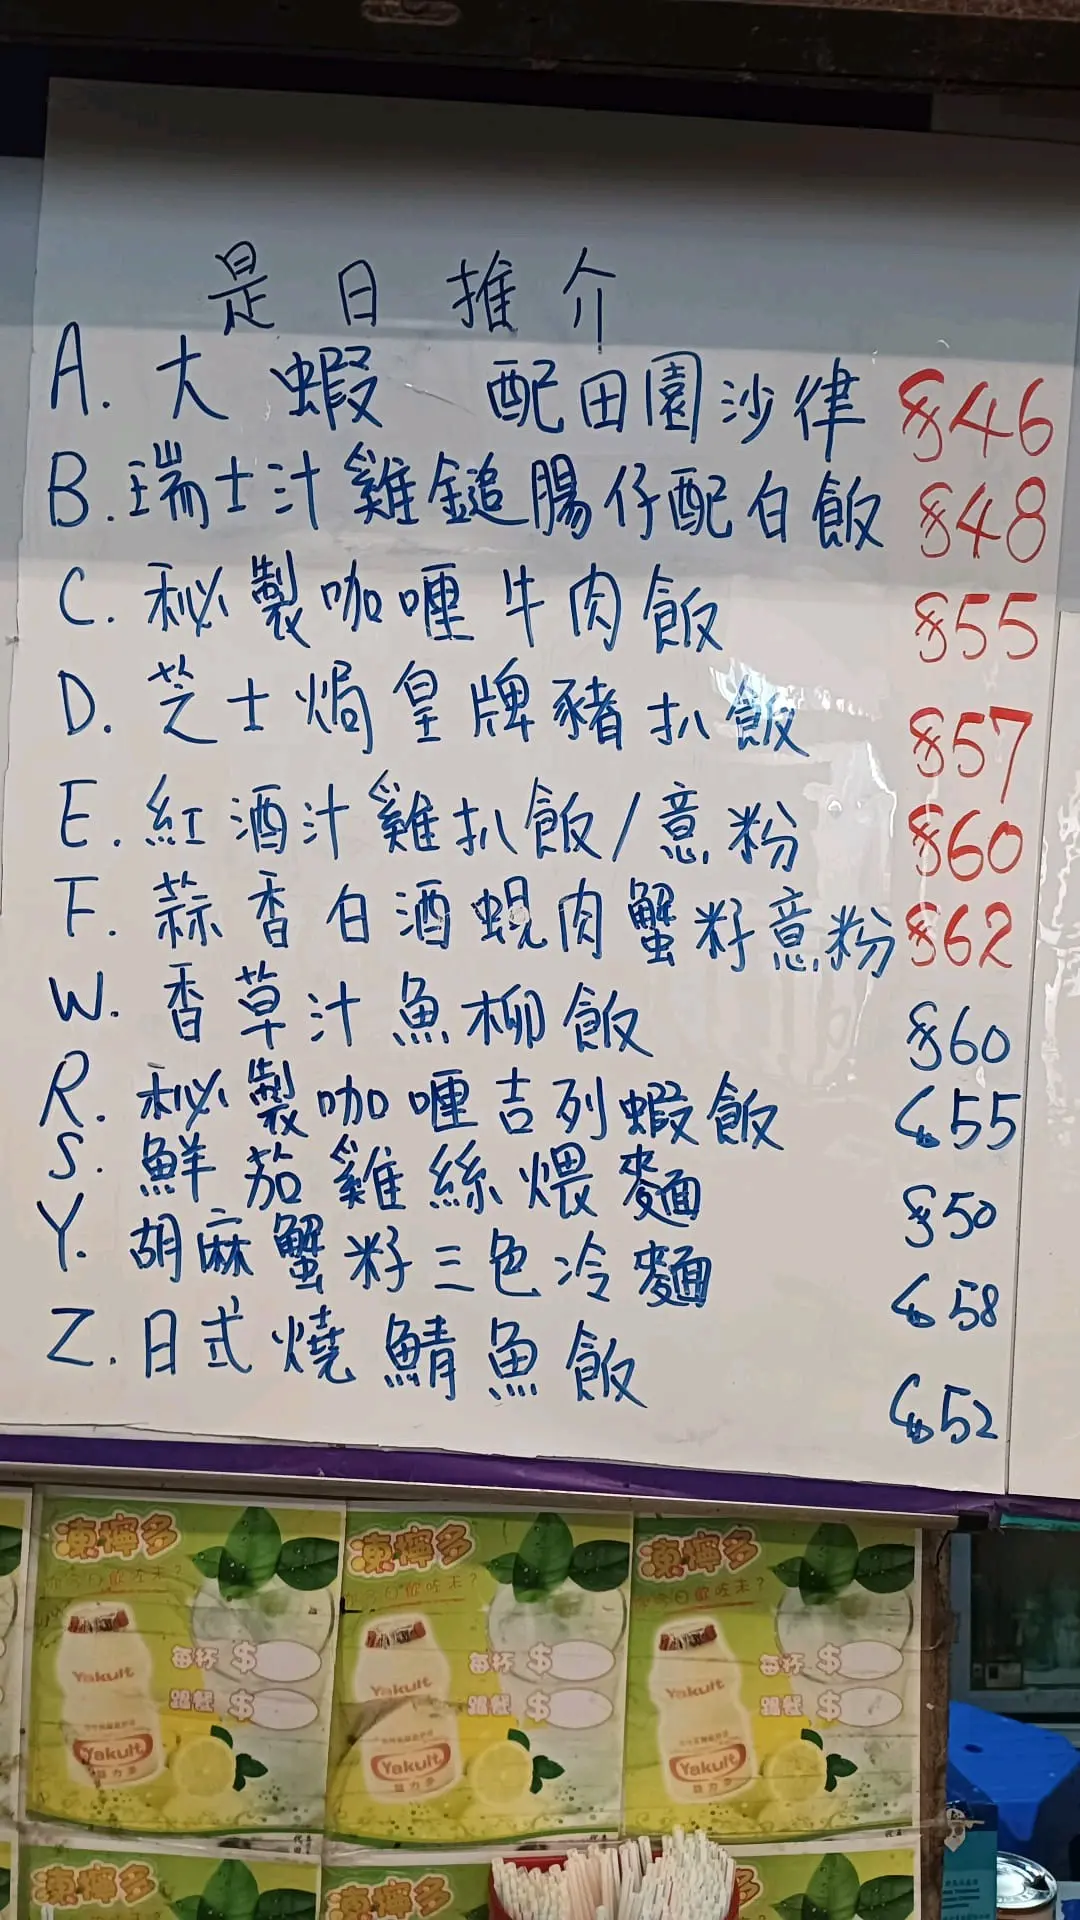 是日推介
A. 大蝦 配田園沙律 $46
B. 瑞士汁雞鎚腸仔配白飯 $48
C. 秘製咖喱牛肉飯 $55
D. 芝士焗皇牌豬扒飯 $57
E. 紅酒汁雞扒飯/意粉 $60
F. 蒜香白酒蜆肉蟹籽意粉 $62
W. 香草汁魚柳飯 $60
R. 秘製咖喱吉列蝦飯 $55
S. 鮮茄雞絲煨麵 $50
Y. 胡麻蟹籽三色冷麵 $58
Z. 日式燒鯖魚飯 $52
凍檸多 凍檸多 凍檸多
你今日飲咗未? 你今日飲咗未? 你今日飲咗未?
每杯 $ 每杯 $ 每杯 $
Yakult Yakult Yakult
跟餐 $ 跟餐 $ 跟餐 $
Yakult Yakult Yakult
益力多 益力多 益力多
凍檸多 凍檸多 凍檸多